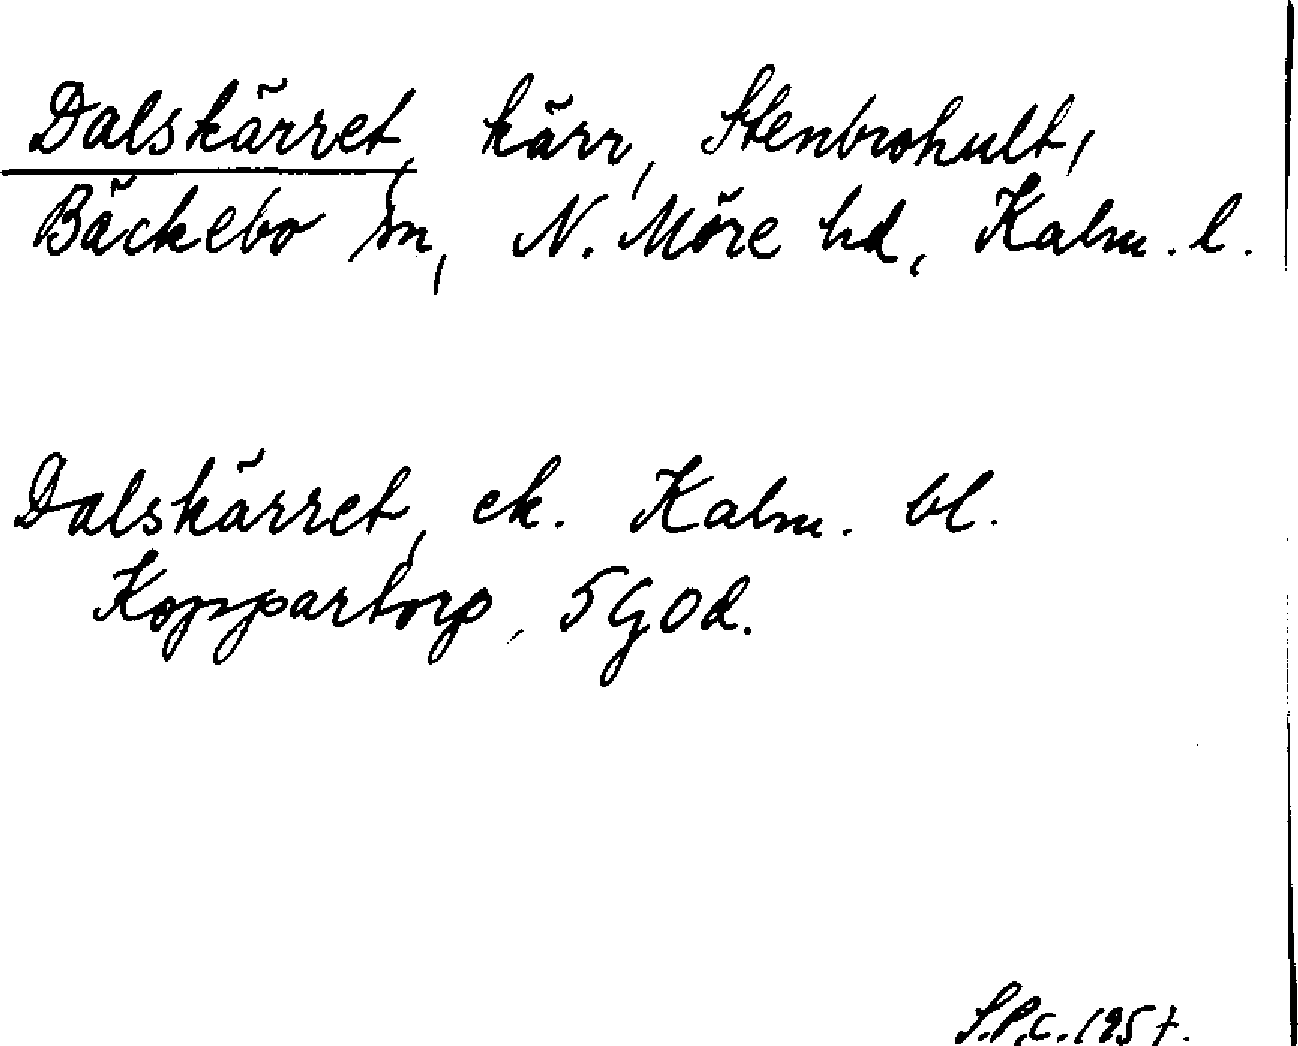 Dalskärret, kärr, Stenbrohult,
Bäckebo sn, N. Möre hd, Kalm. l.
Dalskärret, ek. Kalm. bl.
Koppartorp, 5 g o d.
S.P.C. 1957.